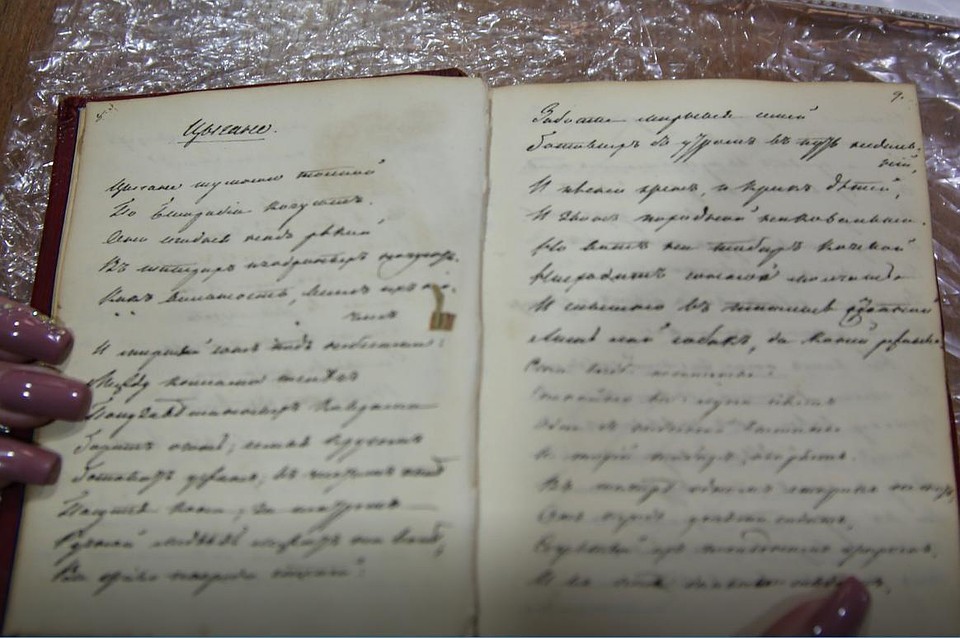 8.
Цыгане.
Цыгане шумною толпой
По Бессарабіи кочуютъ.
Они сегодня надъ рѣкой
Въ шатрахъ изодранныхъ ночуютъ.
Какъ вольность, веселъ ихъ ноч-
легъ
И мирный сонъ подъ небесами:
Между колесами телегъ
Полузавѣшанныхъ коврами
Горитъ огонь; семья кругомъ
Готовитъ ужинъ; въ чистомъ полѣ
Пасутся кони; за шатромъ
Ручной медвѣдь лежитъ на волѣ,
Все живо посреди степей:
9.
Заботы мирныя семей
Готовыхъ съ утромъ въ путь недаль-
ній,
И пѣсни женъ, и крикъ дѣтей,
И звонъ походной наковальни.
Но вотъ на таборъ кочевой
Нисходитъ сонное молчанье
И слышно въ тишинѣ степной
Лишь лай собакъ, да коней ржанье
Огни вездѣ погашены:
Спокойно все: луна сіяетъ
Одна съ небесной вышины
И тихій таборъ озаряетъ.
Въ шатрѣ одномъ старикъ не спитъ,
Онъ передъ углями сидитъ,
Согрѣтый ихъ послѣднимъ жаромъ,
И въ поле дальнее глядитъ,